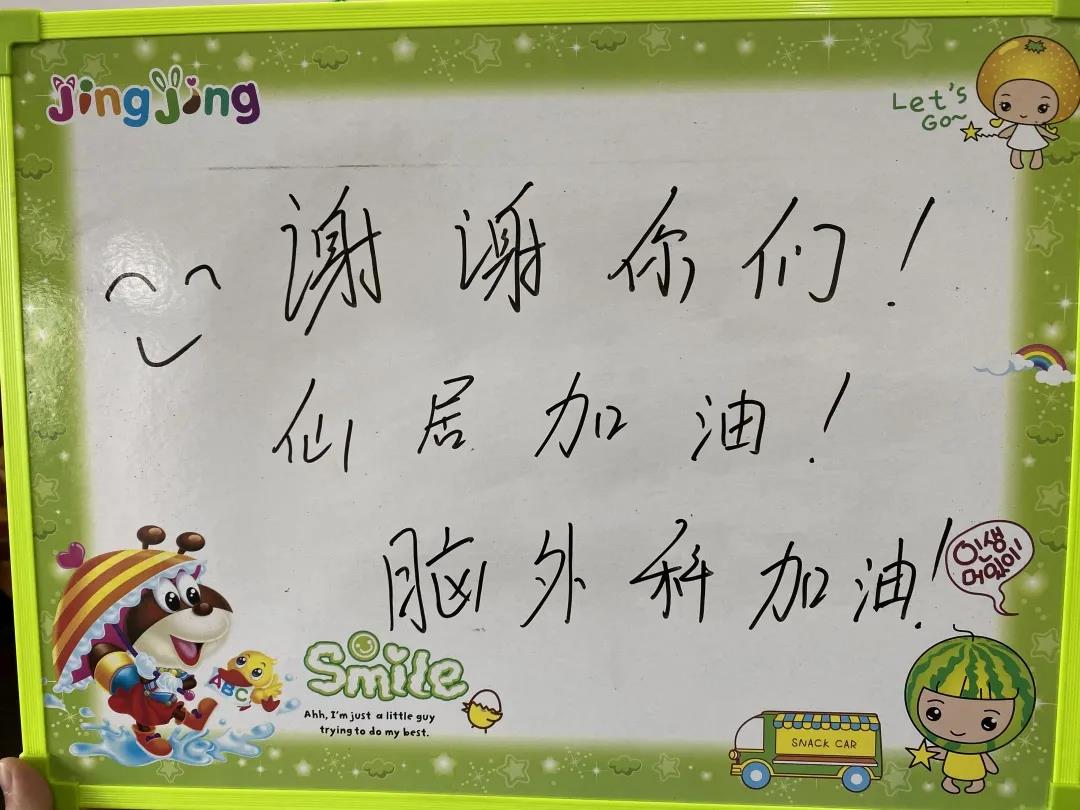 JingJing
Let's
Go~
谢谢你们!
仙居加油!
脑外科加油!
인생
Smile
Ahh, I'm just a little guy
trying to do my best.
ABC
SNACK CAR